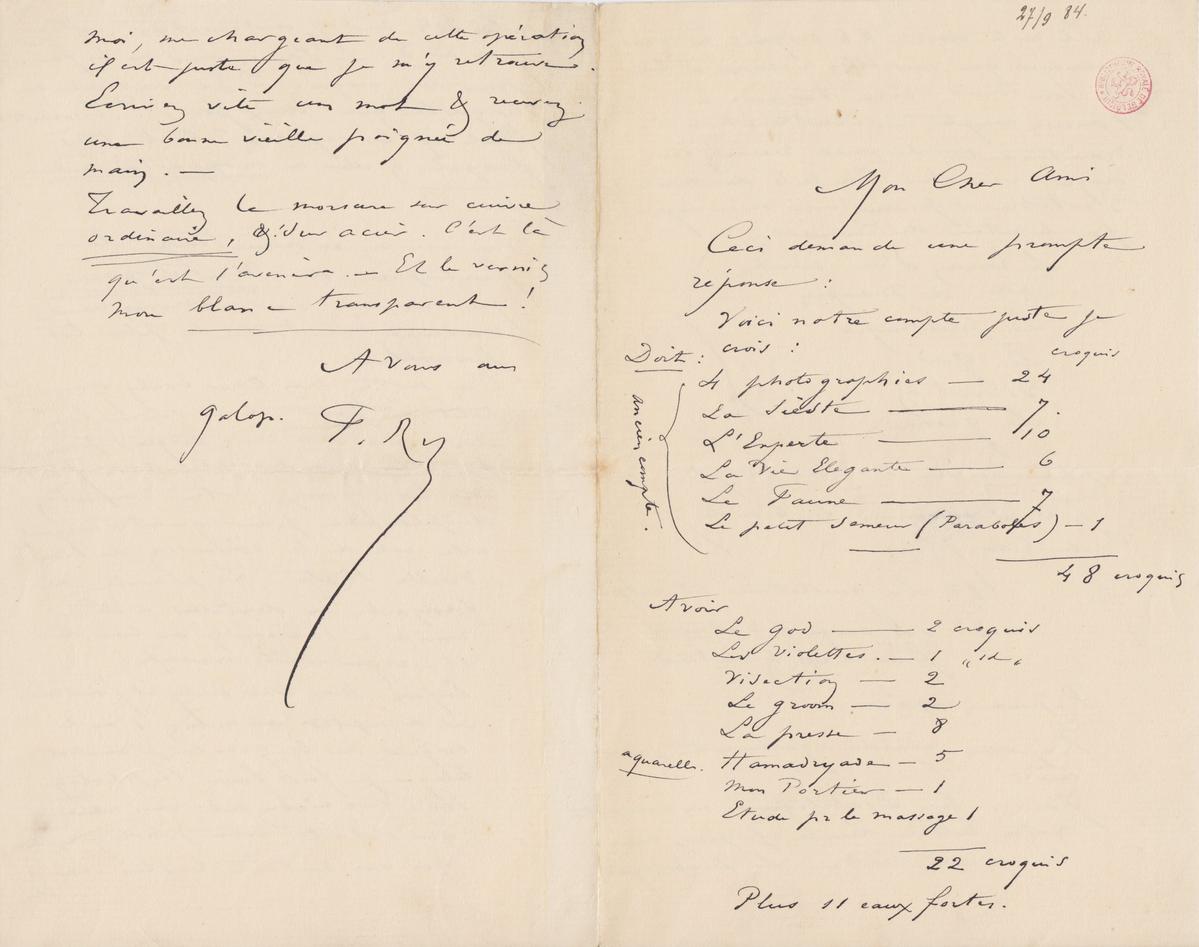 moi, me chargeant de cette opération
il est juste que je m'y retrouve.
Ecrivez vite un mot & recevez
une bonne vieille poignée de
main. —
Travaillez la morsure sur cuivre
ordinaire, & sur acier. C'est là
qu'est l'avenir. — Et le vernis
mou blanc transparent !
A Vous au
galop. F. R
27/9 84.
Mon Cher Ami
Ceci demande une prompte
réponse :
Voici notre compte juste je
crois :
croquis
Doit :
ancien compte.
4 photographies — 24
La Sieste — 7.
L'Experte — 10
La Vie Elegante — 6
Le Faune — 7
Le petit Semeur (Paraboles) — 1
48 croquis
Avoir
Le god — 2 croquis
Les Violettes. — 1 „id„
Visection — 2
Le groom — 2
La presse — 8
aquarelle. Hamadryade — 5
Mon Portier — 1
Etude pr le massage 1
22 croquis
Plus 11 eaux fortes.